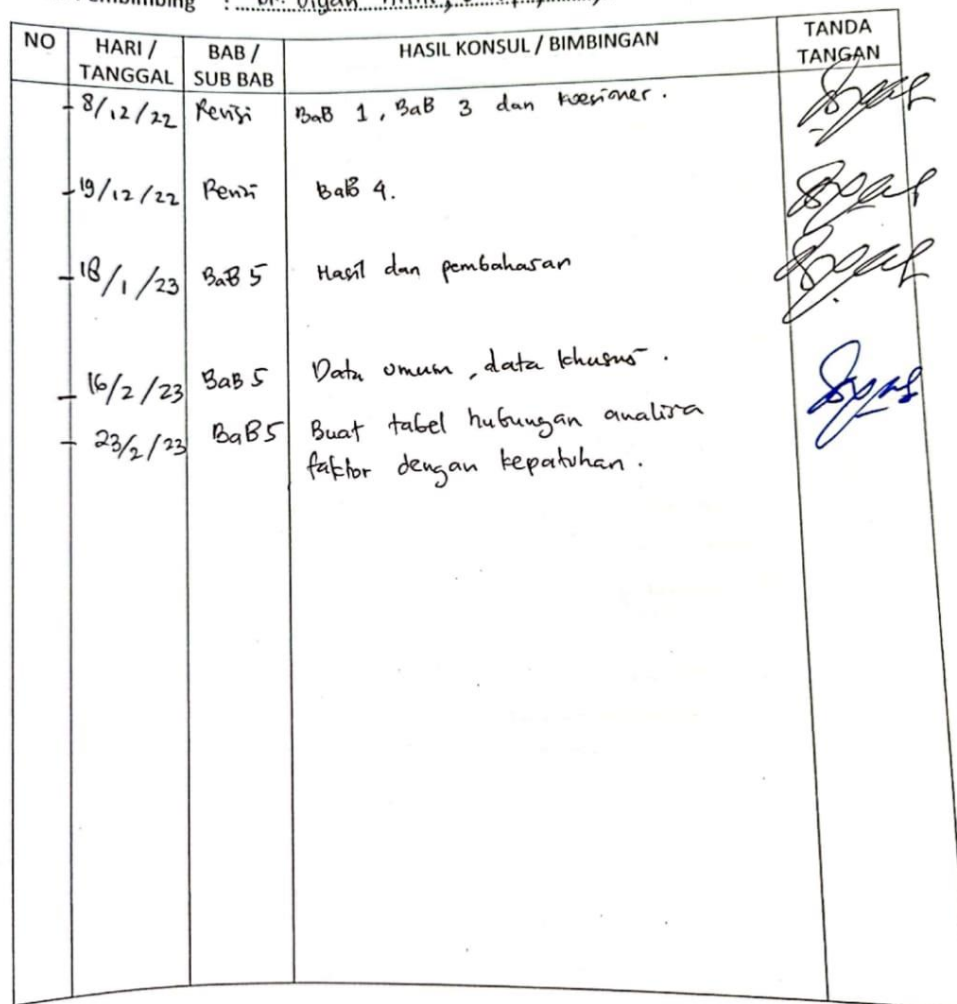 NO HARI / TANGGAL BAB / SUB BAB HASIL KONSUL / BIMBINGAN TANDA TANGAN
- 8/12/22 Revisi BaB 1, BaB 3 dan koesioner.
- 19/12/22 Revisi BaB 4.
- 18/1/23 BaB 5 Hasil dan pembahasan
- 16/2/23 BaB 5 Data umum, data khusus.
- 23/2/23 BaB 5 Buat tabel hubungan analisa
faktor dengan kepatuhan.